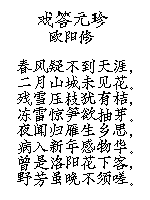 戏答元珍
欧阳修
春风疑不到天涯，
二月山城未见花。
残雪压枝犹有桔，
冻雷惊笋欲抽芽。
夜闻归雁生乡思，
病入新年感物华。
曾是洛阳花下客，
野芳虽晚不须嗟。